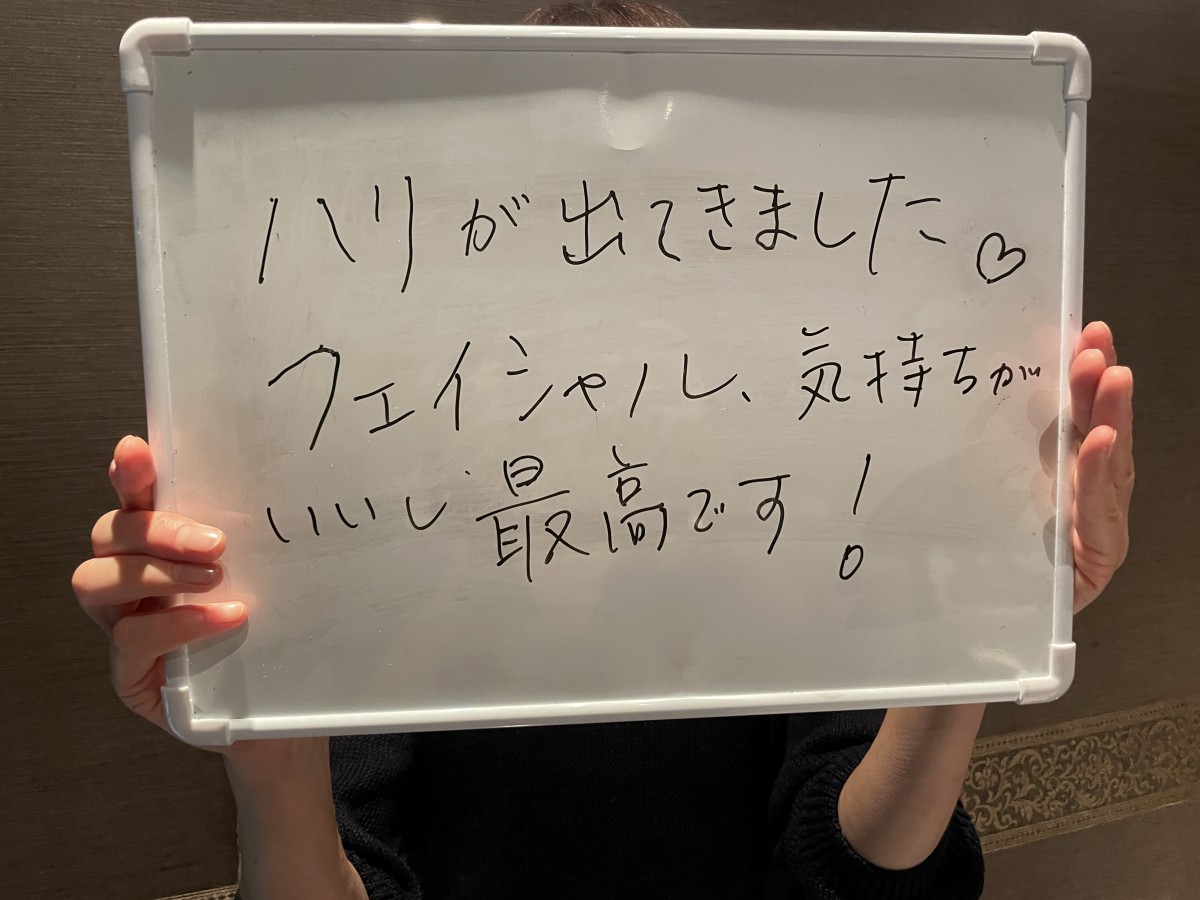 ハリが出てきました♡
フェイシャル、気持ちが
いいし最高です!